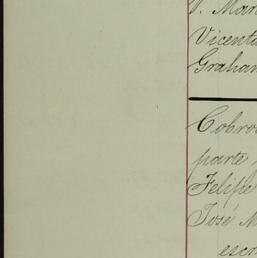 V. Mar
Vicent
Graham
Cobro
parte
Felipe
José M
escr